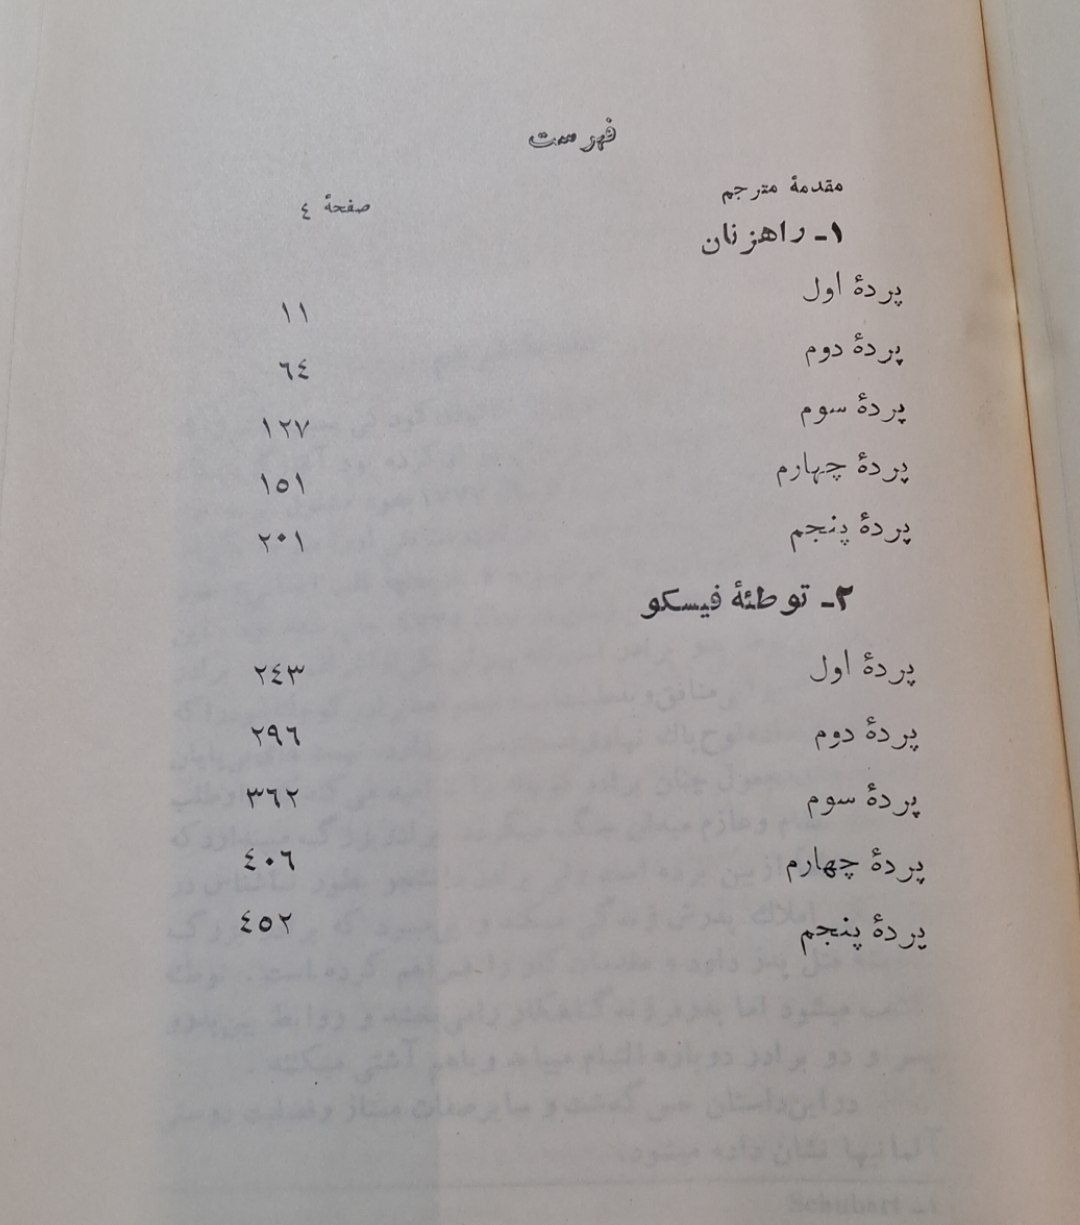 فهرست
مقدمهٔ مترجم صفحهٔ ٤
١- راهزنان
پردهٔ اول ١١
پردهٔ دوم ٦٤
پردهٔ سوم ١٢٧
پردهٔ چهارم ١٥١
پردهٔ پنجم ٢٠١
٢- توطئهٔ فیسکو
پردهٔ اول ٢٤٣
پردهٔ دوم ٢٩٦
پردهٔ سوم ٣٦٢
پردهٔ چهارم ٤٠٦
پردهٔ پنجم ٤٥٢